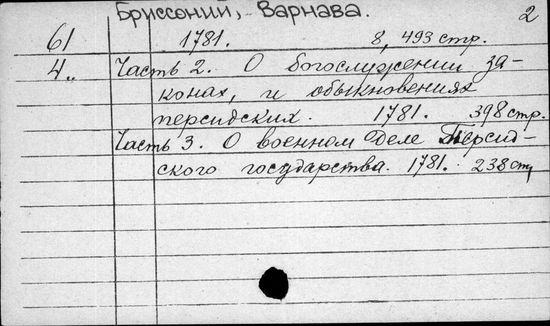 Бриссоний, Варнава. 2
61 1781. 8, 493 стр.
4.. Часть 2. О богослужении за-
конах, и обыкновениях
персидских. 1781. 398 стр.
Часть 3. О военном деле Персид-
ского государства. 1781. 238 стр